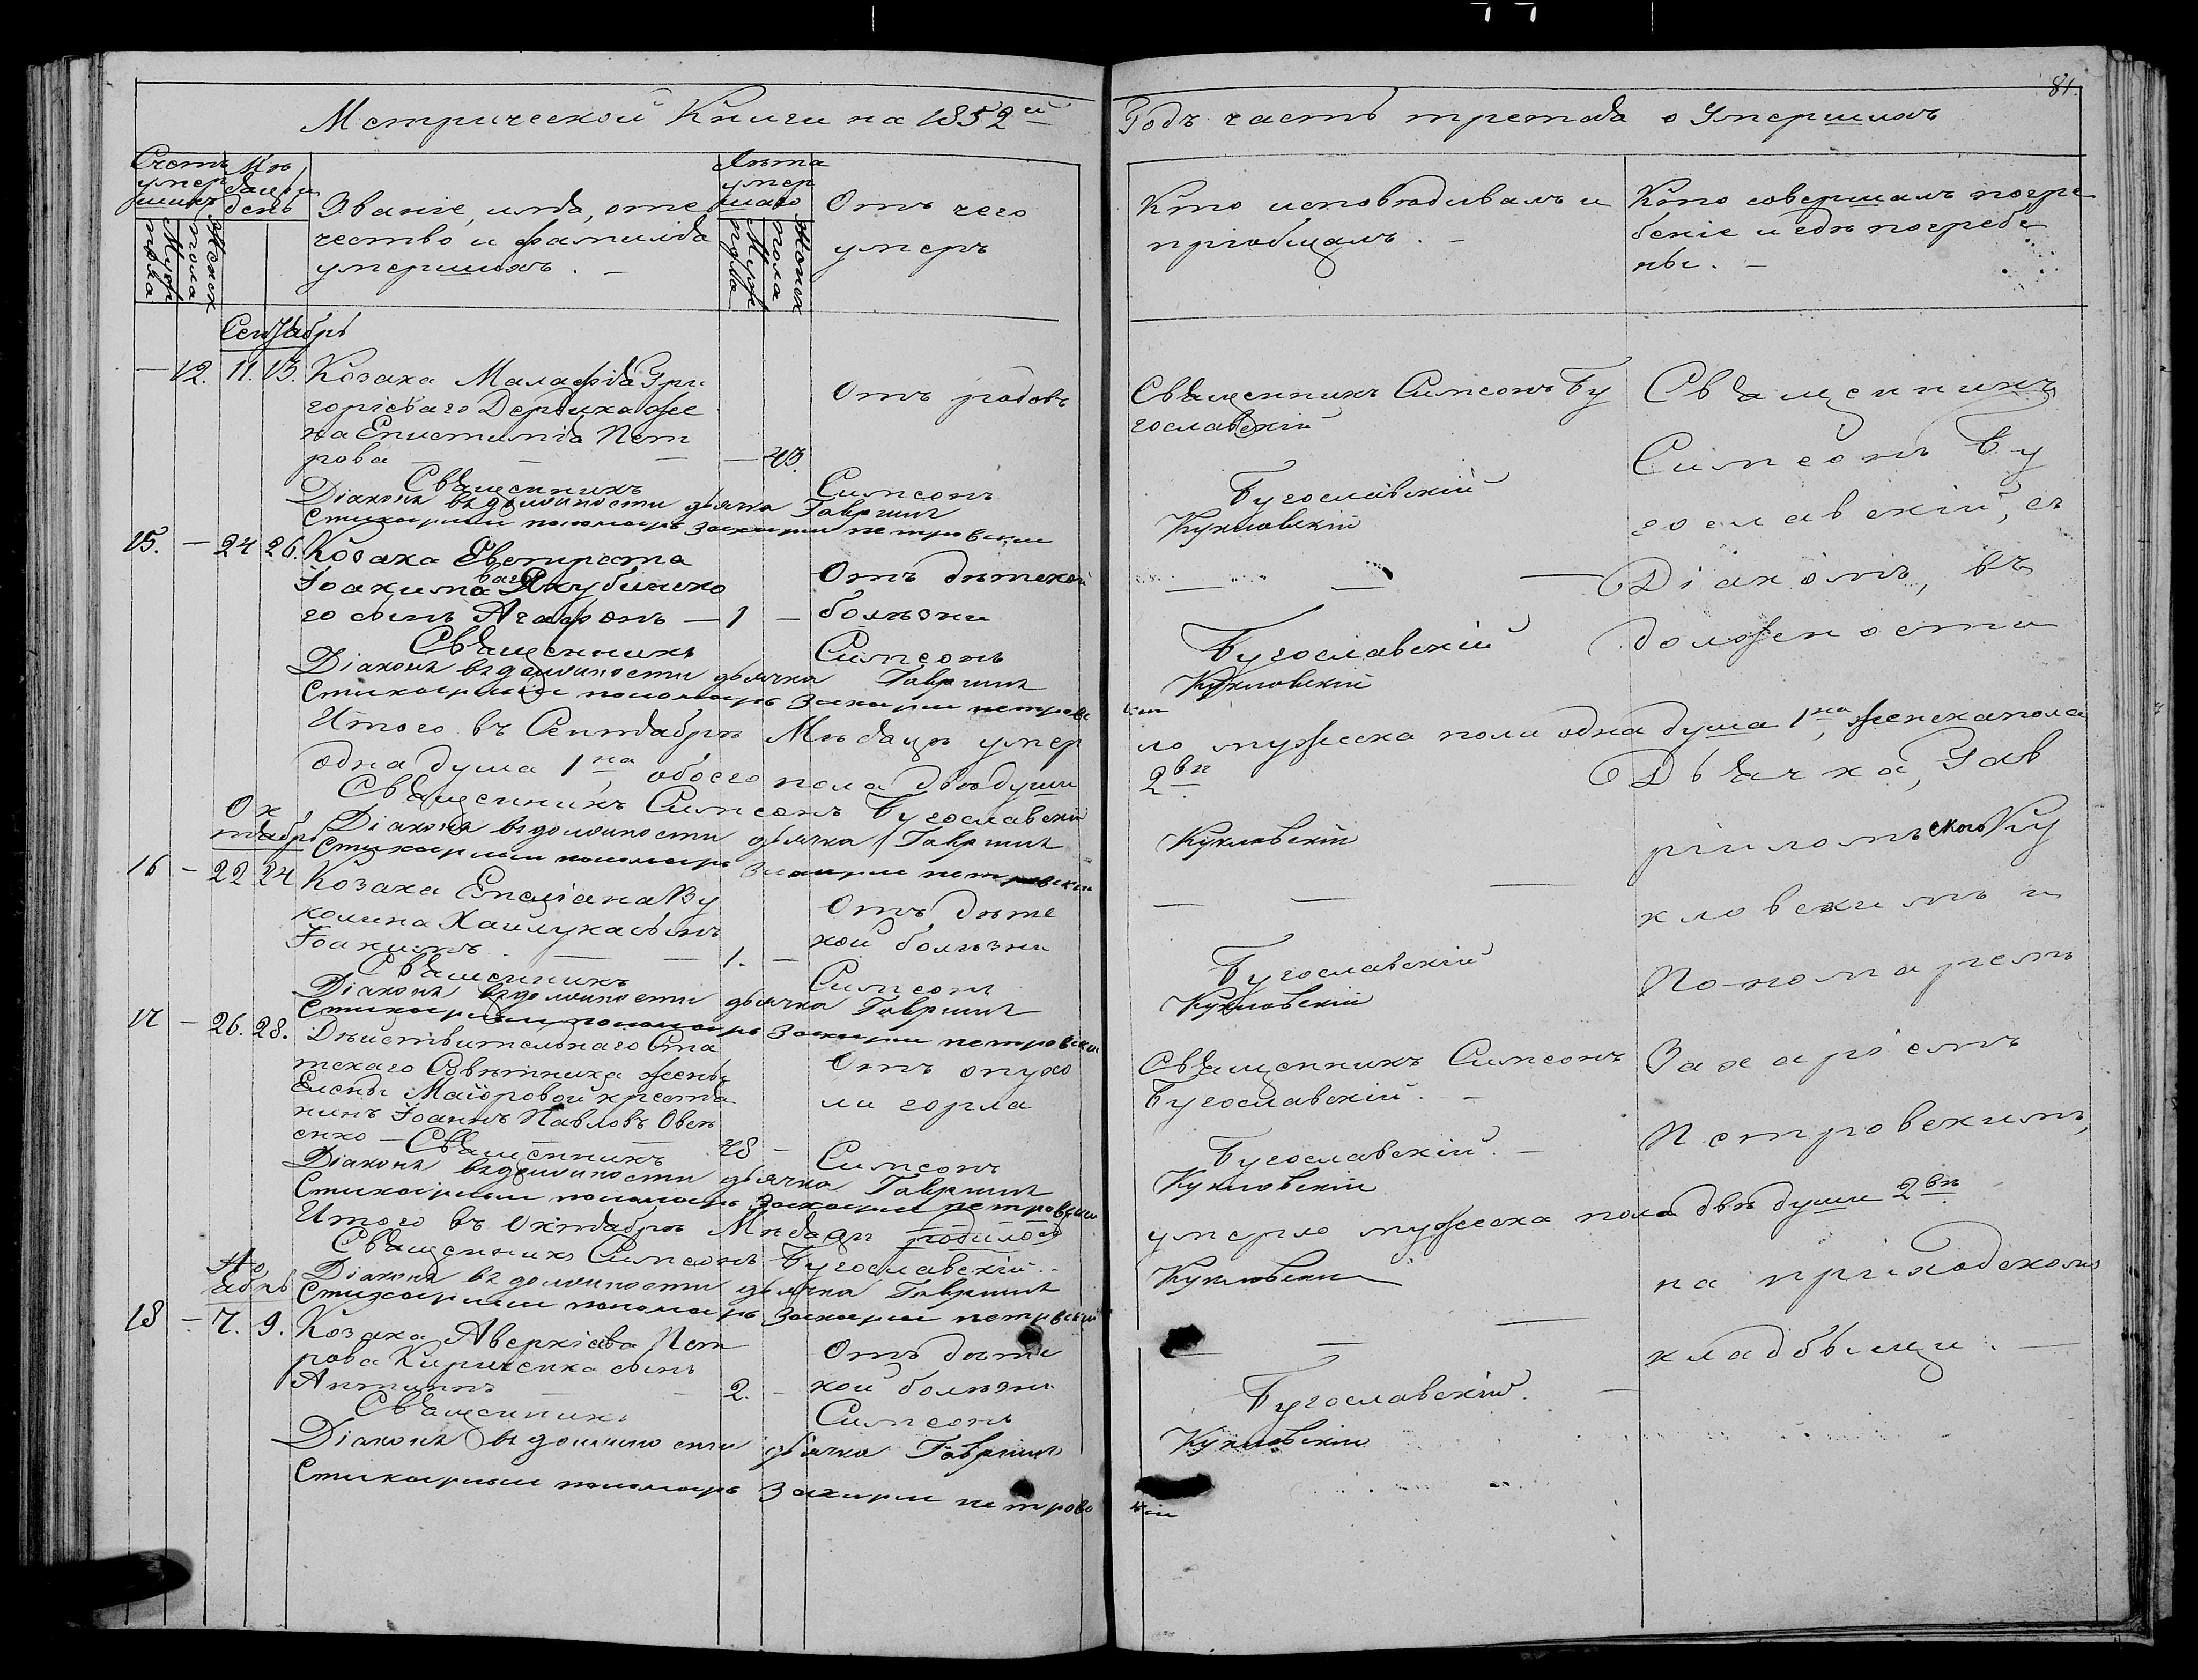 81.
Метрической Книги на 1852й
Годъ часть третья о Умершихъ
Счетъ умершихъ
Мѣсяцъ и день
Званіе, имя, отчество и фамилія умершихъ. —
Лѣта умершаго
Отъ чего умеръ
Кто исповѣдивалъ и пріобщалъ. —
Кто совершалъ погребеніе и гдѣ погребены. —
Сентябрь
— 12. 11. 13. Козака Малафія Гри
горіеваго Дердика же
на Епистимія Пет
рова — — — — 43.
Отъ родовъ
Священникъ Симеонъ Бу
гославскій
Священникъ Симеонъ Бугославскій
Діаконъ въ должности дьячка Гавріилъ Кукловскій
Стихарный пономарь Захарій Петровскій
15. — 24 26. Козака Евстрата
Іоакимоваго Якубинско
го сынъ Агафонъ — 1 —
Отъ дѣтской
болѣзни
Священникъ Симеонъ Бугославскій
Діаконъ въ должности дьячка Гавріилъ Кукловскій
Стихарный пономарь Захарій Петровскій
Итого въ Сентябрѣ Мѣсяцѣ умерло мужеска пола одна душа 1на, женска пола
одна душа 1на, обоего пола двѣ души 2вѣ
Священникъ Симеонъ Бугославскій
Діаконъ въ должности дьячка Гавріилъ Кукловскій
Стихарный пономарь Захарій Петровскій
Октябрь
16 — 22 24 Козака Емеліана Ву
колина Хаилука сынъ
Іоакимъ — — 1. —
Отъ дѣтс
кой болѣзни
Священникъ Симеонъ Бугославскій
Діаконъ въ должности дьячка Гавріилъ Кукловскій
Стихарный пономарь Захарій Петровскій
17 — 26. 28. Дѣйствительнаго Ста
тскаго Совѣтника жены
Елены Маіоровой крестья
нинъ Іоаннъ Павловъ Овсѣ
енко — 48 —
Отъ опухо
ли горла
Священникъ Симеонъ
Бугославскій. —
Священникъ Симеонъ Бугославскій. —
Діаконъ въ должности дьячка Гавріилъ Кукловскій
Стихарный пономарь Захарій Петровскій
Итого въ Октябрѣ Мѣсяцѣ родилось умерло мужеска пола двѣ души 2вѣ
Священникъ Симеонъ Бугославскій. —
Діаконъ въ должности дьячка Гавріилъ Кукловскій
Стихарный пономарь Захарій Петровскій
Ноябрь
18 — 7. 9. Козака Аверкіева Пет
рова Кириченка сынъ
Антипъ — — 2. —
Отъ дѣтс
кой болѣзни
Священникъ Симеонъ Бугославскій. —
Діаконъ въ должности дьячка Гавріилъ Кукловскій
Стихарный пономарь Захарій Петровскій
Священникъ
Симеонъ Бу
гославскій, съ
Діакономъ, въ
должности
Дьячка, Гав
ріиломъ Ку
кловскимъ и
Пономаремъ
Захаріемъ
Петровскимъ,
на приходскомъ
кладбыщи. —